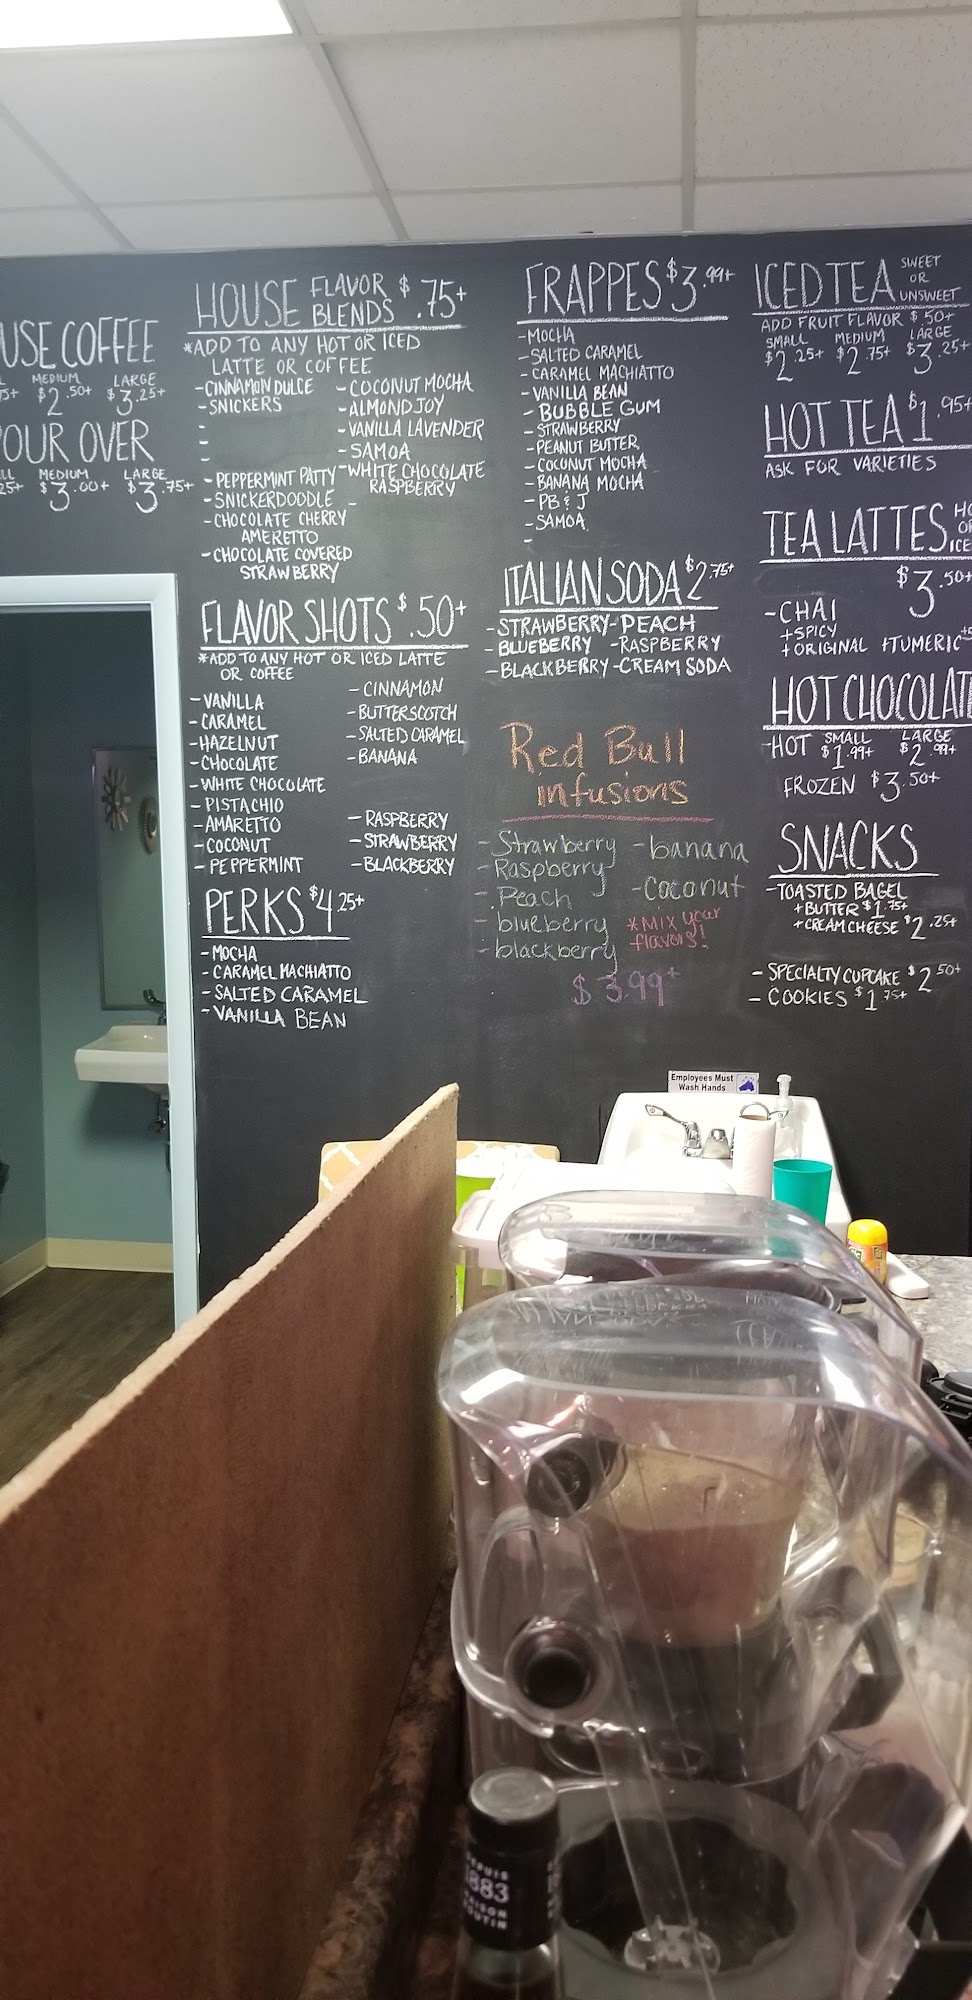 USE COFFEE
MEDIUM LARGE
$2.50+ $3.25+
OUR OVER
MEDIUM LARGE
$3.00+ $3.75+
HOUSE FLAVOR BLENDS $.75+
*ADD TO ANY HOT OR ICED
LATTE OR COFFEE
-CINNAMON DULCE
-SNICKERS
-
-
-PEPPERMINT PATTY
-SNICKERDOODLE -
-CHOCOLATE CHERRY
AMERETTO
-CHOCOLATE COVERED
STRAWBERRY
-COCONUT MOCHA
-ALMOND JOY
-VANILLA LAVENDER
-SAMOA
-WHITE CHOCOLATE
RASPBERRY
FLAVOR SHOTS $.50+
*ADD TO ANY HOT OR ICED LATTE
OR COFFEE
-VANILLA
-CARAMEL
-HAZELNUT
-CHOCOLATE
-WHITE CHOCOLATE
-PISTACHIO
-AMARETTO
-COCONUT
-PEPPERMINT
-CINNAMON
-BUTTERSCOTCH
-SALTED CARAMEL
-BANANA
-RASPBERRY
-STRAWBERRY
-BLACKBERRY
PERKS $4.25+
-MOCHA
-CARAMEL MACHIATTO
-SALTED CARAMEL
-VANILLA BEAN
FRAPPES $3.99+
-MOCHA
-SALTED CARAMEL
-CARAMEL MACHIATTO
-VANILLA BEAN
-BUBBLE GUM
-STRAWBERRY
-PEANUT BUTTER
-COCONUT MOCHA
-BANANA MOCHA
-PB & J
-SAMOA
-
ITALIAN SODA $2.75+
-STRAWBERRY -PEACH
-BLUEBERRY -RASPBERRY
-BLACKBERRY -CREAM SODA
Red Bull
infusions
-Strawberry -banana
-Raspberry
-Peach -Coconut
-blueberry *Mix your
-blackberry flavors!
$3.99+
ICED TEA SWEET OR UNSWEET
ADD FRUIT FLAVOR $.50+
SMALL MEDIUM LARGE
$2.25+ $2.75+ $3.25+
HOT TEA $1.95+
ASK FOR VARIETIES
TEA LATTES
$3.50+
-CHAI
+SPICY
+ORIGINAL +TUMERIC
HOT CHOCOLAT
-HOT SMALL LARGE
$1.99+ $2.99+
FROZEN $3.50+
SNACKS
-TOASTED BAGEL
+BUTTER $1.75+
+CREAM CHEESE $2.25+
-SPECIALTY CUPCAKE $2.50+
-COOKIES $1.75+
Employees Must
Wash Hands
1883